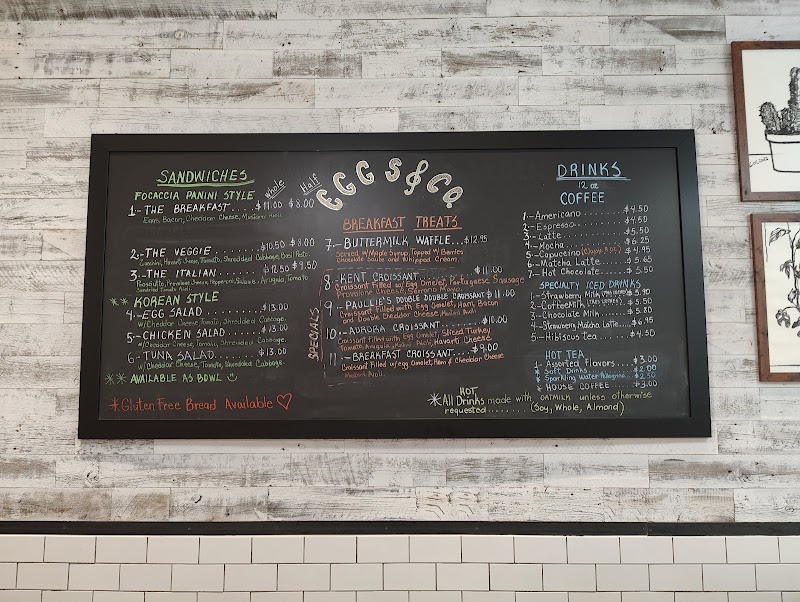 EGGS & Co.
SANDWICHES
FOCACCIA PANINI STYLE
Whole Half
1.- THE BREAKFAST... $11.00 $8.00
Eggs, Bacon, Cheddar Cheese, Mustard Aioli.
2.- THE VEGGIE........ $10.50 $8.00
Cheese, Tomato, Shredded Cabbage, Basil Pesto.
3.- THE ITALIAN........ $12.50 $9.50
Prosciutto, Provolone Cheese, Pepperoni, Salami, Arugula, Tomato
Tomato Aioli.
** KOREAN STYLE
4.- EGG SALAD.......... $13.00
w/Cheddar Cheese, Tomato, Shredded Cabbage.
5.- CHICKEN SALAD..... $13.00
w/Cheddar Cheese, Tomato, Shredded Cabbage.
6.- TUNA SALAD........ $13.00
w/Cheddar Cheese, Tomato, Shredded Cabbage.
** AVAILABLE AS BOWL
* Gluten Free Bread Available
BREAKFAST TREATS
7.- BUTTERMILK WAFFLE... $12.95
Served w/Maple Syrup, Topped w/Berries
Chocolate Sauce and Whipped Cream.
SPECIALS
8.- KENT CROISSANT....... $11.00
Croissant Filled w/ Egg Omelet, Portuguese Sausage
Provolone Cheese, Serrano Mayo.
9.- PAULLIE'S DOUBLE DOUBLE CROISSANT $11.00
Croissant Filled with Egg Omelet, Ham, Bacon
and Double Cheddar Cheese, Aioli
10.- AURORA CROISSANT....... $10.00
Croissant Filled with Egg Omelet, Sliced Turkey
Tomato, Arugula, Aioli, Havarti Cheese
11.- BREAKFAST CROISSANT.... $9.00
Croissant Filled w/egg Omelet, Ham & Cheddar Cheese
Aioli.
DRINKS
12 oz
COFFEE
1.- Americano.......... $4.50
2.- Espresso........... $4.50
3.- Latte.............. $5.50
4.- Mocha.............. $6.25
5.- Capuccino $4.95
6.- Matcha Latte....... $5.65
7.- Hot Chocolate...... $5.50
SPECIALTY ICED DRINKS
1.- Strawberry Milk $5.80
2.- Coffee Milk $5.80
3.- Chocolate Milk..... $5.80
4.- Strawberry Matcha Latte.... $6.95
5.- Hibiscus Tea....... $4.50
HOT TEA
1- Assorted Flavors.... $3.00
* Soft Drinks......... $2.00
* Sparkling Water Pellegrino.. $2.50
* HOUSE COFFEE..... $3.00
HOT
* All Drinks made with OATMILK unless otherwise
requested......... (Soy, Whole, Almond)